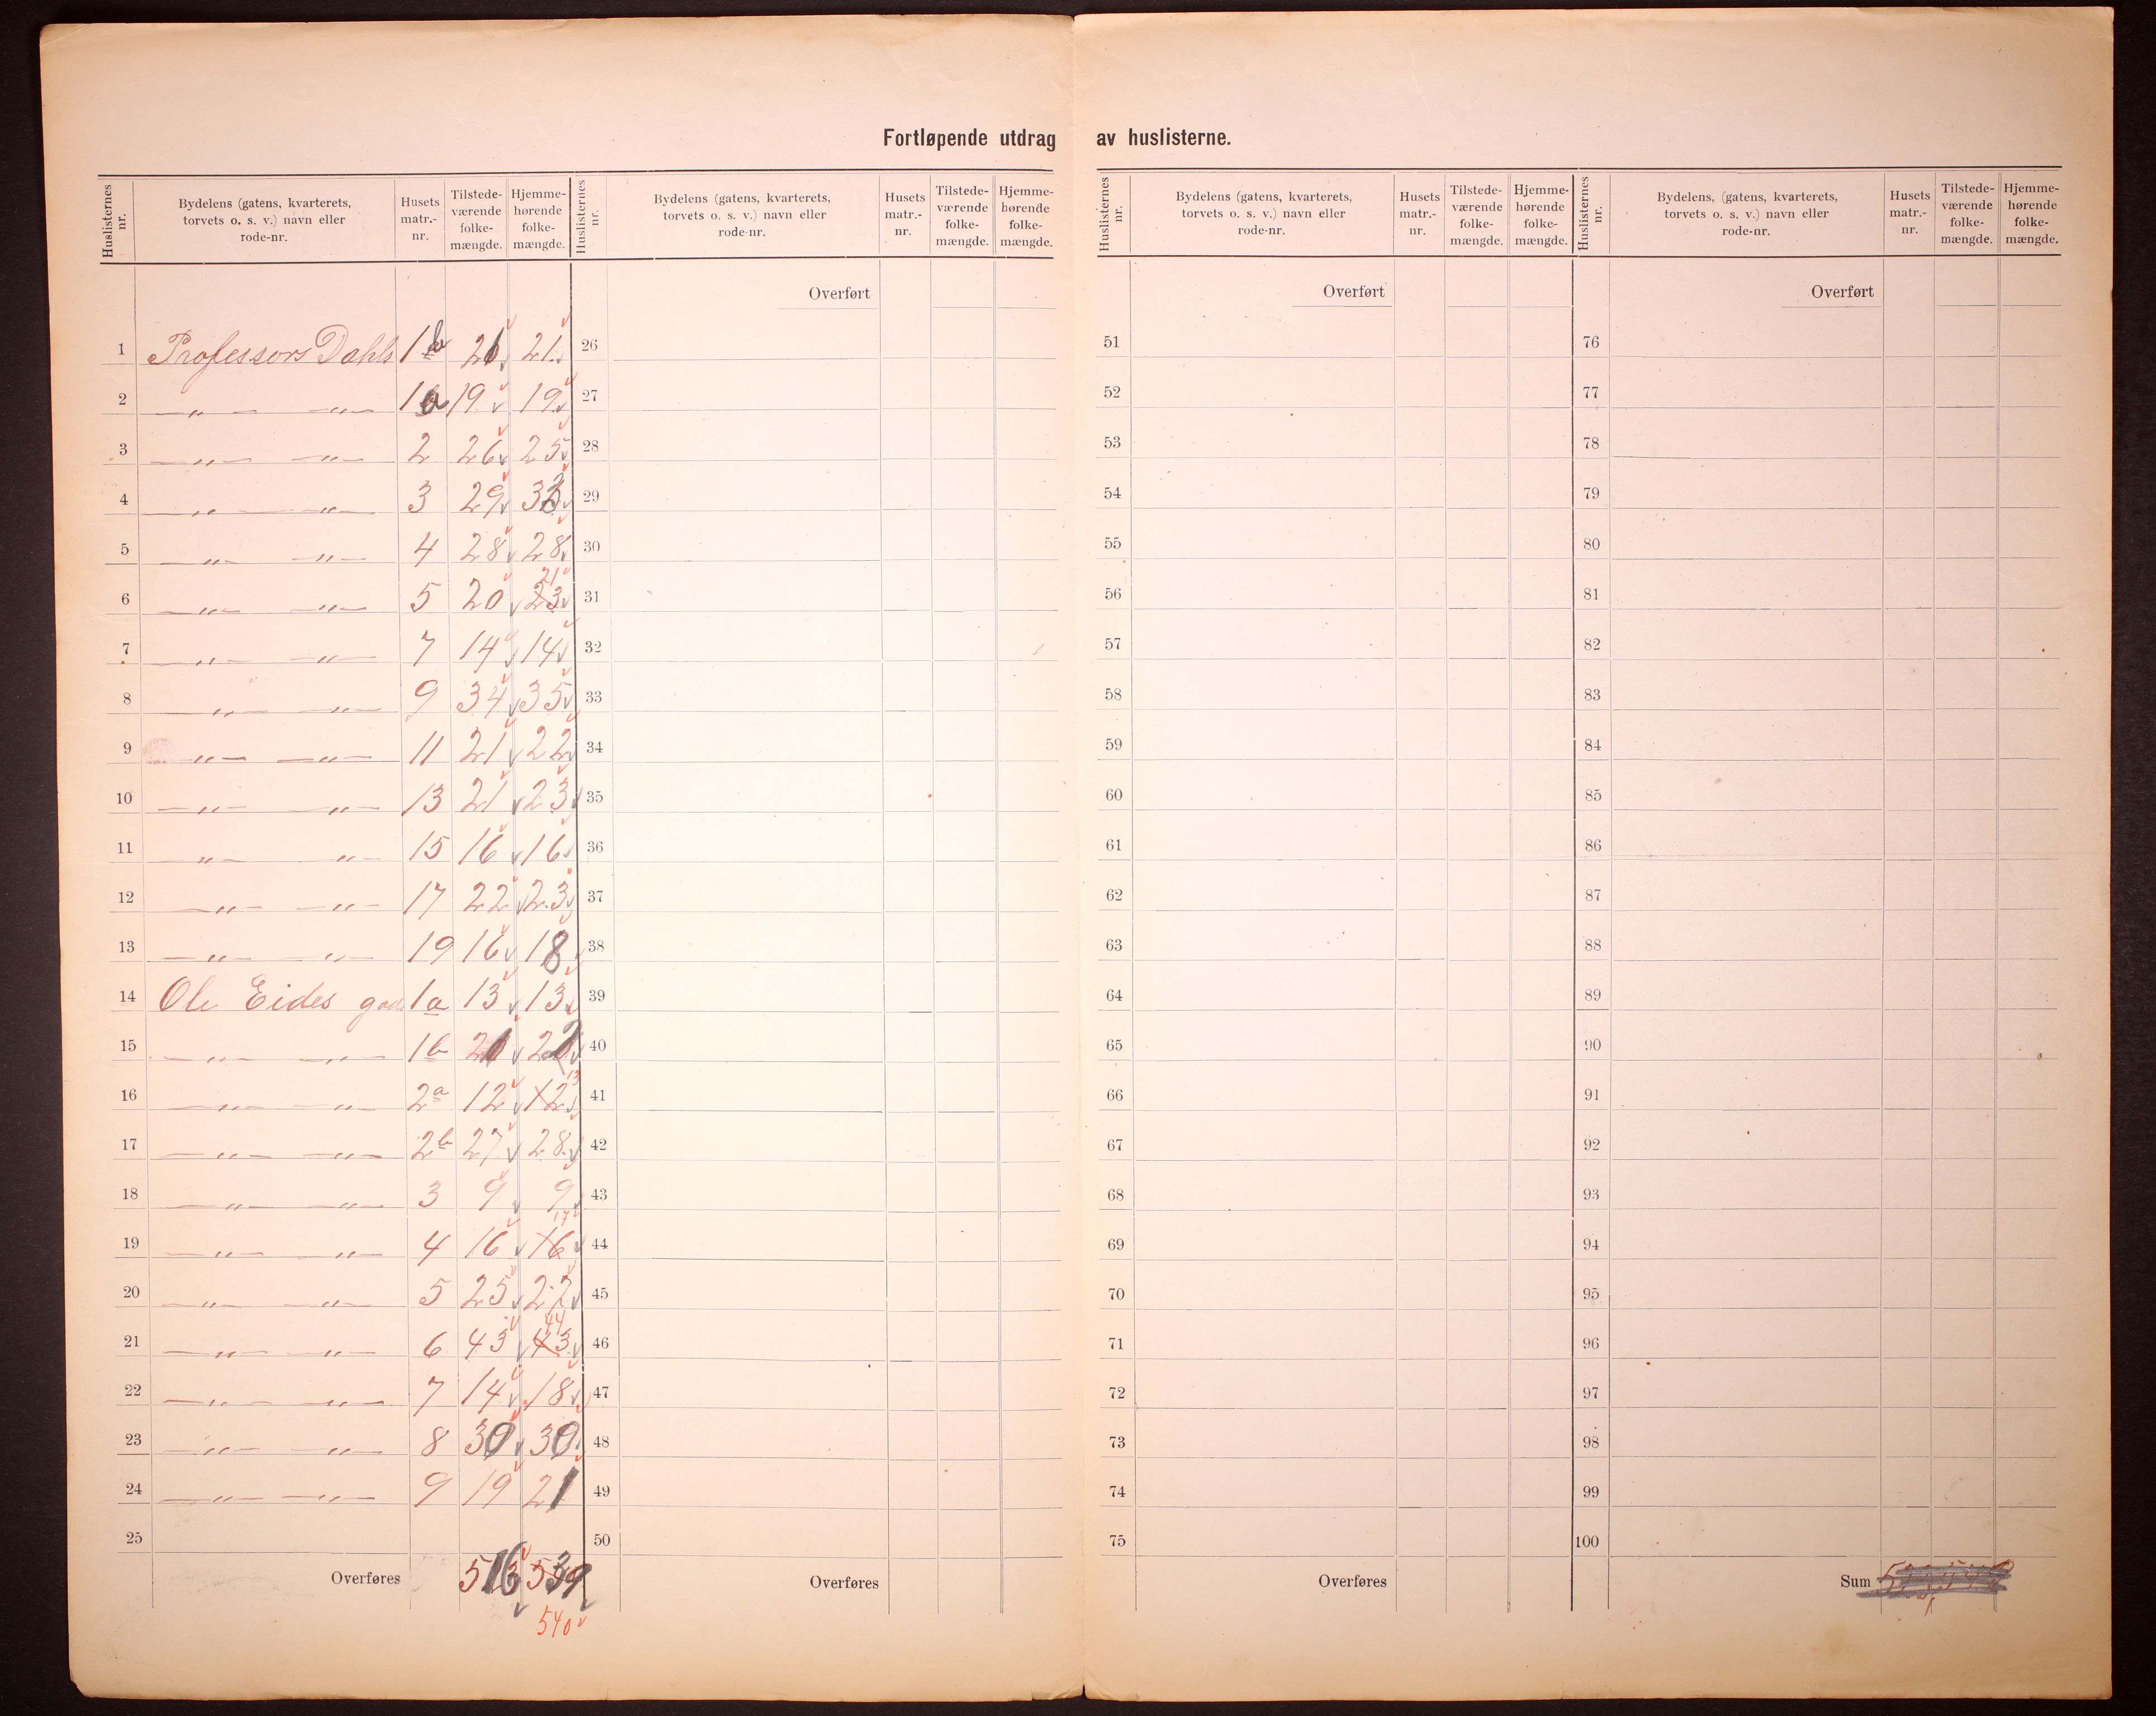 Fortløpende utdrag av huslisterne.
Huslisternes nr. | Bydelens (gatens, kvarterets, torvets o. s. v.) navn eller rode-nr. | Husets matr.-nr. | Tilstede-værende folke-mængde. | Hjemme-hørende folke-mængde. | Huslisternes nr. | Bydelens (gatens, kvarterets, torvets o. s. v.) navn eller rode-nr. | Husets matr.-nr. | Tilstede-værende folke-mængde. | Hjemme-hørende folke-mængde. | Huslisternes nr. | Bydelens (gatens, kvarterets, torvets o. s. v.) navn eller rode-nr. | Husets matr.-nr. | Tilstede-værende folke-mængde. | Hjemme-hørende folke-mængde. | Huslisternes nr. | Bydelens (gatens, kvarterets, torvets o. s. v.) navn eller rode-nr. | Husets matr.-nr. | Tilstede-værende folke-mængde. | Hjemme-hørende folke-mængde.
Overført Overført Overført
1 Professors Dahls 1b 21 21 26 51 76
2 —„— —„— 1a 19 19 27 52 77
3 —„— —„— 2 26 25 28 53 78
4 —„— —„— 3 29 33 29 54 79
5 —„— —„— 4 28 28 30 55 80
6 —„— —„— 5 20 23 21 31 56 81
7 —„— —„— 7 14 14 32 57 82
8 —„— —„— 9 34 35 33 58 83
9 —„— —„— 11 21 22 34 59 84
10 —„— —„— 13 21 23 35 60 85
11 —„— —„— 15 16 16 36 61 86
12 —„— —„— 17 22 23 37 62 87
13 —„— —„— 19 16 18 38 63 88
14 Ole Eides gad 1a 13 13 39 64 89
15 —„— —„— 1b 21 22 40 65 90
16 —„— —„— 2a 12 12 13 41 66 91
17 —„— —„— 2b 27 28 42 67 92
18 —„— —„— 3 9 9 43 68 93
19 —„— —„— 4 16 16 17 44 69 94
20 —„— —„— 5 25 22 45 70 95
21 —„— —„— 6 43 43 44 46 71 96
22 —„— —„— 7 14 18 47 72 97
23 —„— —„— 8 30 30 48 73 98
24 —„— —„— 9 19 21 49 74 99
25 50 75 100
Overføres 516 539 Overføres Overføres Sum
540